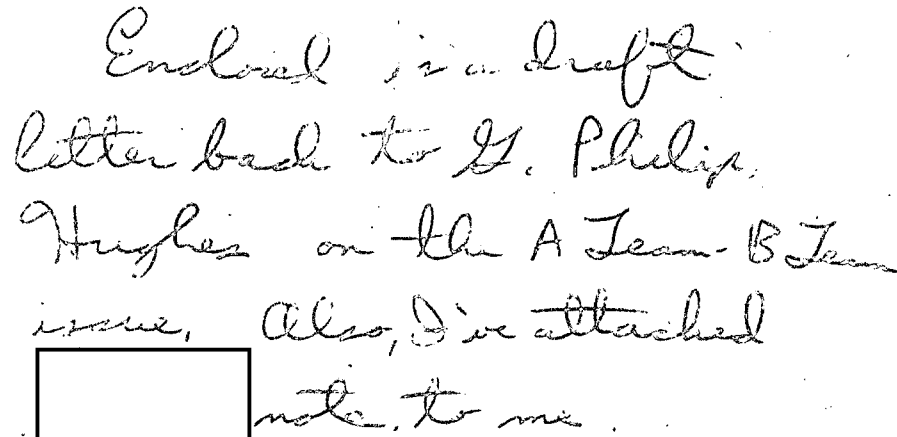 Enclosed is a draft
letter back to G. Philip
Hughes on the A Team-B Team
issue. Also, I've attached
note to me